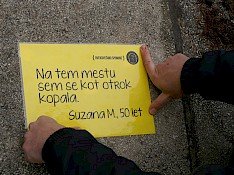 Na tem mestu
sem se kot otrok
kopala.
Suzana M., 50 let